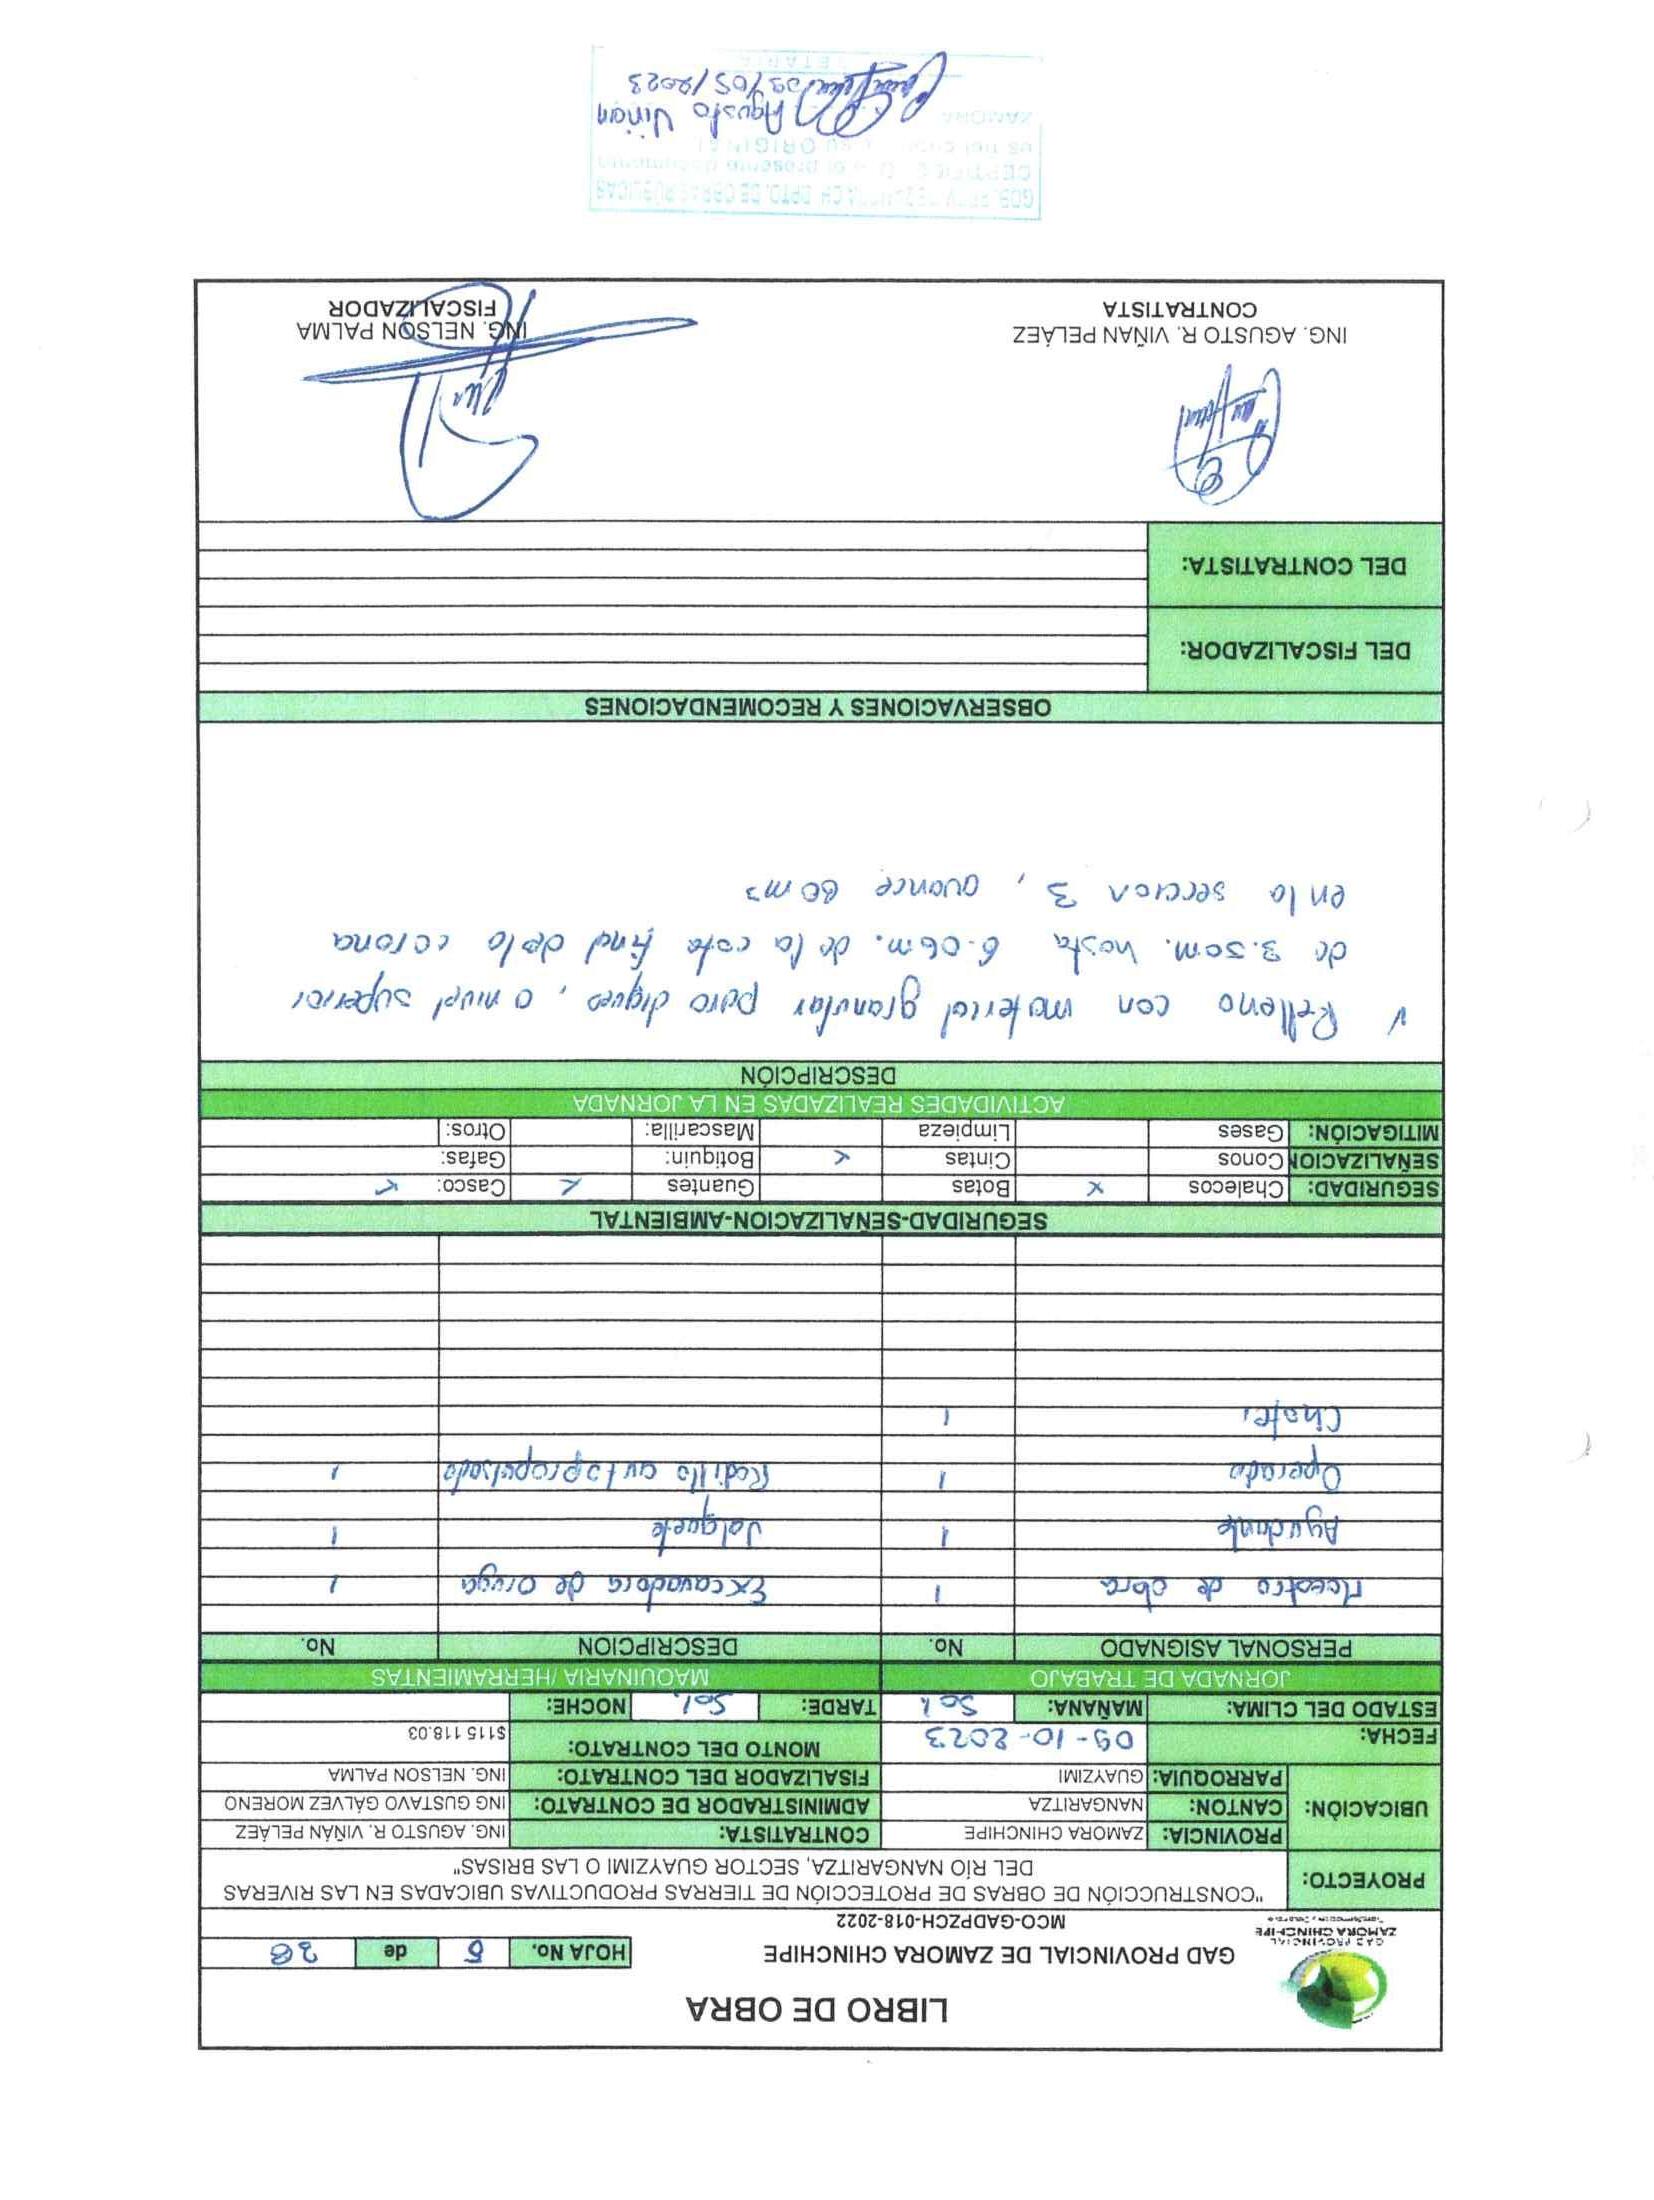 LIBRO DE OBRA
GAD PROVINCIAL
ZAMORA CHINCHIPE
GAD PROVINCIAL DE ZAMORA CHINCHIPE
HOJA No. 5 de 28
MCO-GADPZCH-018-2022
PROYECTO: "CONSTRUCCIÓN DE OBRAS DE PROTECCIÓN DE TIERRAS PRODUCTIVAS UBICADAS EN LAS RIVERAS
DEL RÍO NANGARITZA, SECTOR GUAYZIMI O LAS BRISAS"
UBICACIÓN: PROVINCIA: ZAMORA CHINCHIPE CONTRATISTA: ING. AGUSTO R. VIÑAN PELÁEZ
CANTON: NANGARITZA ADMINISTRADOR DE CONTRATO: ING GUSTAVO GÁLVEZ MORENO
PARROQUIA: GUAYZIMI FISALIZADOR DEL CONTRATO: ING. NELSON PALMA
FECHA: 09-10-2023 MONTO DEL CONTRATO: $115 118.03
ESTADO DEL CLIMA: MAÑANA: Sol TARDE: Sol NOCHE:
JORNADA DE TRABAJO MAQUINARIA /HERRAMIENTAS
PERSONAL ASIGNADO No. DESCRIPCION No.
Maestro de obra 1 Excavadora de oruga 1
Ayudante 1 Volquete 1
Operado 1 Rodillo autopropulsado 1
Chofer 1
SEGURIDAD-SEÑALIZACION-AMBIENTAL
SEGURIDAD: Chalecos x Botas Guantes x Casco: x
SEÑALIZACION Conos Cintas x Botiquin: Gafas:
MITIGACIÓN: Gases Limpieza Mascarilla: Otros:
ACTIVIDADES REALIZADAS EN LA JORNADA
DESCRIPCIÓN
✓ Relleno con material granular para diques, a nivel superior
de 3.50m. hasta 6.06m. de la cota final de la corona
en la seccion 3, avance 80 m³
OBSERVACIONES Y RECOMENDACIONES
DEL FISCALIZADOR:
DEL CONTRATISTA:
ING. AGUSTO R. VIÑAN PELÁEZ ING. NELSON PALMA
CONTRATISTA FISCALIZADOR
DPTO. DE OBRAS PÚBLICAS
el presente documento
su ORIGINAL
ZAMORA
Agusto Viñan
09/05/2023